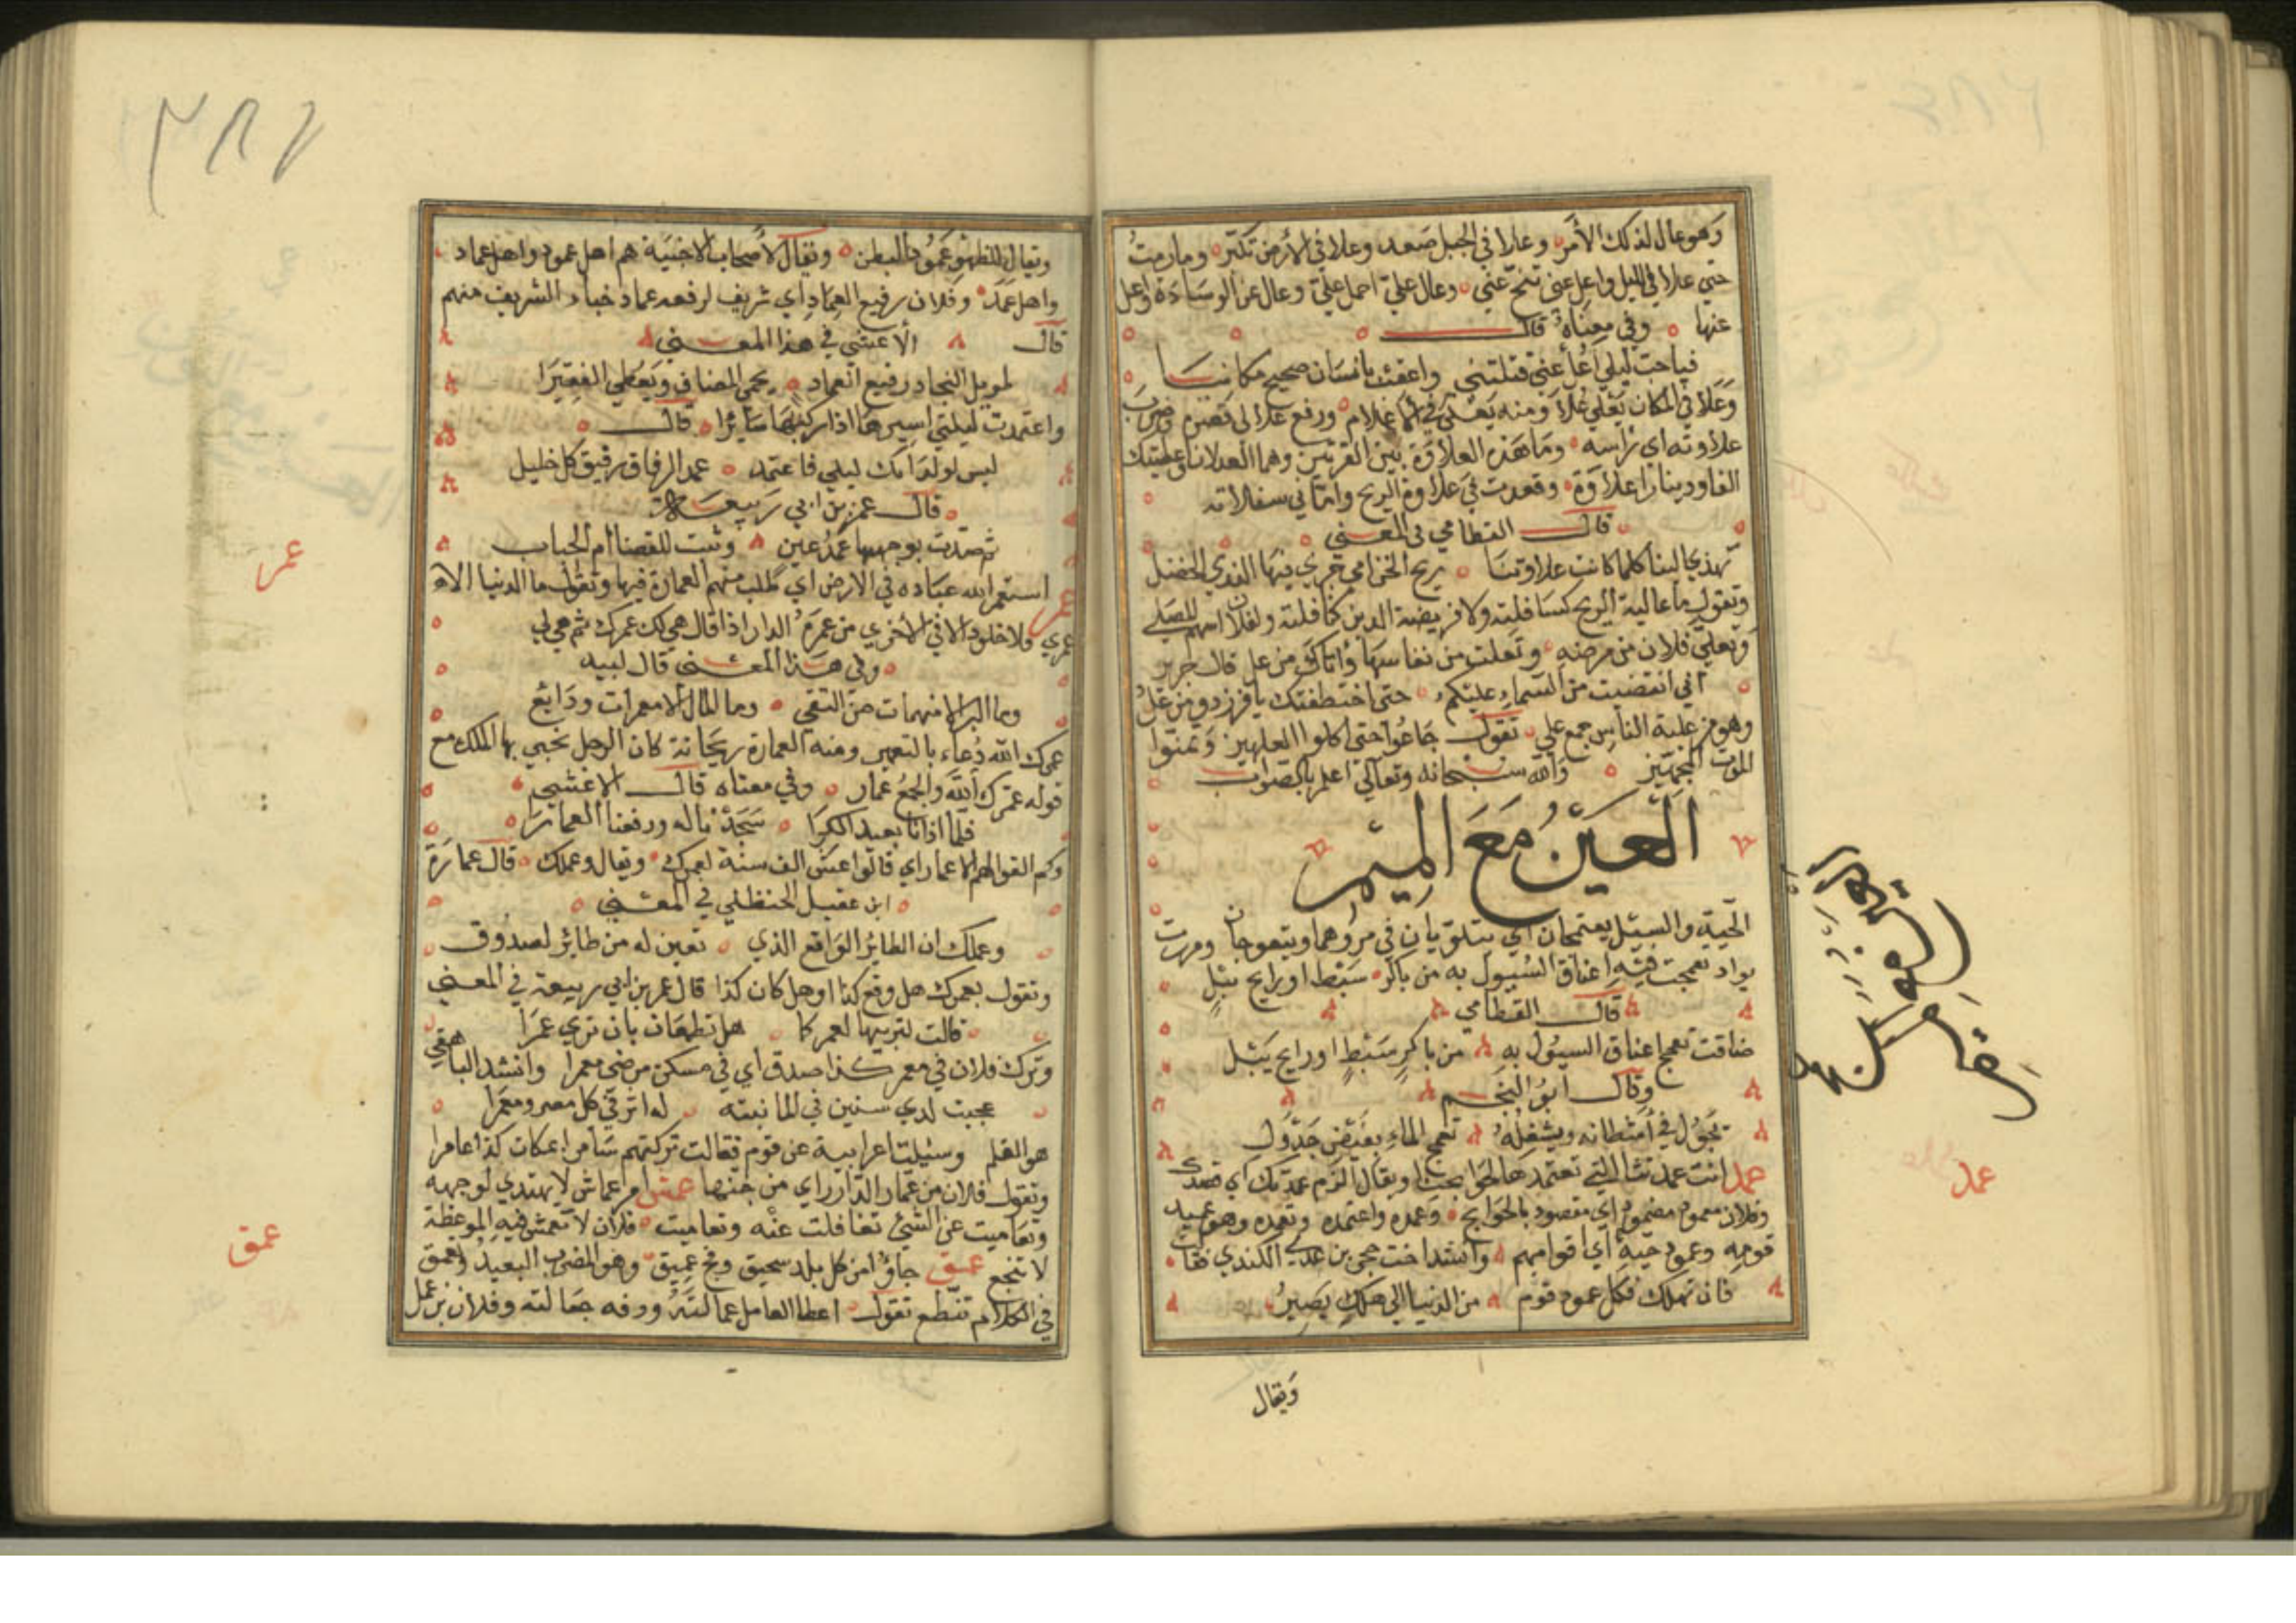 وهو عال لذلك الأمر وعلا في الجبل صعد وعلا في الأرض تكبر وما رمت
حتى علا في الليل واعل عني تنح عني وعال علي احمل علي وعال عن الوسادة واعل
عنها وفي معناه قال
فيا حب ليلى اعل عني قتلتني واعقبت بانسان صحيح مكانيا
وعلا في المكان يعلي علاء ومنه يعلى في أسماء غلام ورفع علا لي قصره وضرب
علاوته اي راسه وما هذه العلاوة بين الفردين وهما العدلان واعطيتك
الفا ودينارا علاوة وقعدت في علاوة الريح وانا في سفلاته
قال القطامي في المعنى
تهدي الينا كلما كانت علاوتنا ريح الخزامى جرى فيها الندي الخضل
وتقول ما عالية الريح كسافلته ولا فريضة الدين كنافلته ولفلان اسهم المعلى
وتعلى فلان من مرضه وتعلت من نفاسها وأتاك من عل قال جرير
اني انقضيت من السماء عليكم حتى اختطفتك يا فرزدق من عل
وهو من علية الناس جمع علي تقول جاعوا حتى اكلوا العلهز وتمنوا
الموت المجهز والله سبحانه وتعالى اعلم بالصواب
العين مع الميم
الحية والسيل يعتمجان اي يتلويان في مرورهما ويتعوجان ومررت
بواد تعمجت فيه اعناق السيول به من باكر سبط او رايح يبل
قال القطامي
ضاقت تعمج اعناق السيول به من باكر سبط او رايح يبل
وقال ابو النجم
تجول في أشطانه ويشغله تعمج الماء يفيض جدول
عمد انت عمدتنا التي تعتمدها لحوايجنا ويقال الزم عمدتك اي قصدك
وفلان معمود مضمود اي مقصود بالحوايج وعمده واعتمده وتعمده وهو عميد
قومه وعمود حيه اي قوامهم وانشد اخت حجر بن عدي الكندي فقالت
فان تهلك فكل عمود قوم من الدنيا الى هلك يصير
ويقال
عمد
٣٨٧
ويقال للظهر عمود البطن ويقال لأصحاب الاخبية هم اهل عمود واهل عماد
واهل عمد وفلان رفيع العماد اي شريف لرفعه عماد خباء الشريف منهم
قال الأعشى في هذا المعنى
طويل النجاد رفيع العماد يحمي المضاف ويعطي الفقيرا
واعتمدت ليلتي اسيرها اذا ركبتها سائرا قال
ليس لولدانك ليلي فاعتمد عمد الرفاق رفيق كل خليل
قال عمر بن ابي ربيعة
ثم صدت بوجهها عمد عين وثنت للقضا ام الحباب
عمر استعمر الله عباده في الارض اي طلب منهم العمارة فيها وتقول ما الدنيا الا
عمري ولا خلود الا في الأخرى من عمره الدار اذا قال هي لك عمرك ثم هي لي
وفي هذا المعنى قال لبيد
وما البر الا مضمرات من التقى وما المال الا معمرات ودايع
عمرك الله دعاء بالتعمير ومنه العمارة ريحانة كان الرجل يحيي بها الملك مع
قوله عمرك الله والجمع عمار وفي معناه قال الاعشى
فلما اتانا بعيد الكرا سجدنا له ورفعنا العمارا
وكم القوا لهم الاعمار اي قالوا عش الف سنة لعمرك ويقال وعملك قال عمارة
ابن عقيل الحنظلي في المعنى
وعملك ان الطائر الواقع الذي تعين له من طائر لصدوق
وتقول بعمرك هل وقع كذا او هل كان كذا قال عمر بن ابي ربيعة في المعنى
قالت لتربيها لعمركما هل تطمعان بان نرى عمرا
وترك فلان في معمر كذا صدق اي في مسكن مرضي معمرا وانشد الباهلي
عجبت لذي سنين في الما نبته له اثر في كل مصر ومعمرا
هو القلم وسئلت اعرابية عن قوم فقالت تركتهم سامرا بمكان كذا عامرا
وتقول فلان من عمار الدار اي من جنها عمش امر اعماش لا يهتدي لوجهه
وتعاميت عن الشئ تغافلت عنه وتعاميت فلان لا تعمش فيه الموعظة
لا تنجع عمق جاؤا من كل بلد سحيق وفج عميق وهو المضرب البعيد وعمق
في الكلام تنطع تقول اعطا العامل عمالته ووفه جعالته وفلان بن عمل
عمر
عمق